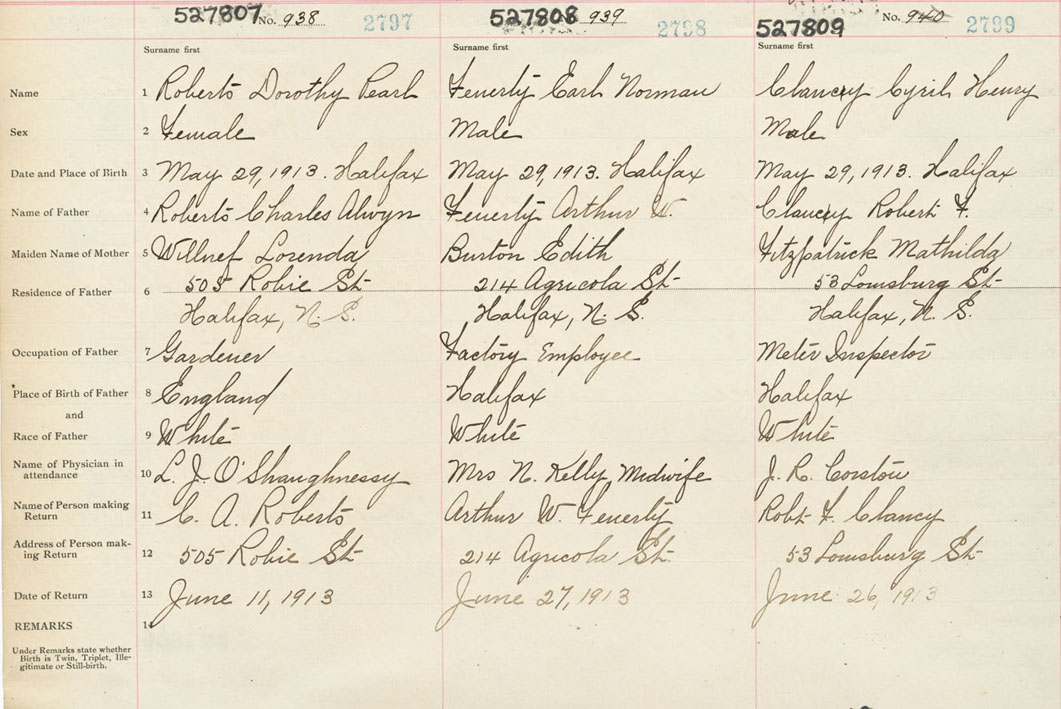 527807 No. 938 2797 527808 939 2798 527809 No. 940 2799
Surname first Surname first Surname first
Name 1 Roberts Dorothy Pearl Fenerty Earl Norman Clancey Cyril Henry
Sex 2 Female Male Male
Date and Place of Birth 3 May 29, 1913. Halifax May 29, 1913. Halifax May 29, 1913. Halifax
Name of Father 4 Roberts Charles Alwyn Fenerty Arthur W. Clancey Robert F.
Maiden Name of Mother 5 Willnef Lorenda Burton Edith Fitzpatrick Mathilda
Residence of Father 6 505 Robie St- 214 Agricola St- 53 Louisburg St-
Halifax, N. S. Halifax, N. S. Halifax, N. S.
Occupation of Father 7 Gardener Factory Employee Meter Inspector
Place of Birth of Father 8 England Halifax Halifax
and
Race of Father 9 White White White
Name of Physician in
attendance 10 L. J. O'Shaughnessy Mrs N. Kelly Midwife J. R. Corston
Name of Person making
Return 11 C. A. Roberts Arthur W. Fenerty Robt F. Clancy
Address of Person mak-
ing Return 12 505 Robie St- 214 Agricola St. 53 Louisburg St-
Date of Return 13 June 11, 1913 June 27, 1913 June 26, 1913
REMARKS 14
Under Remarks state whether
Birth is Twin, Triplet, Ille-
gitimate or Still-birth.